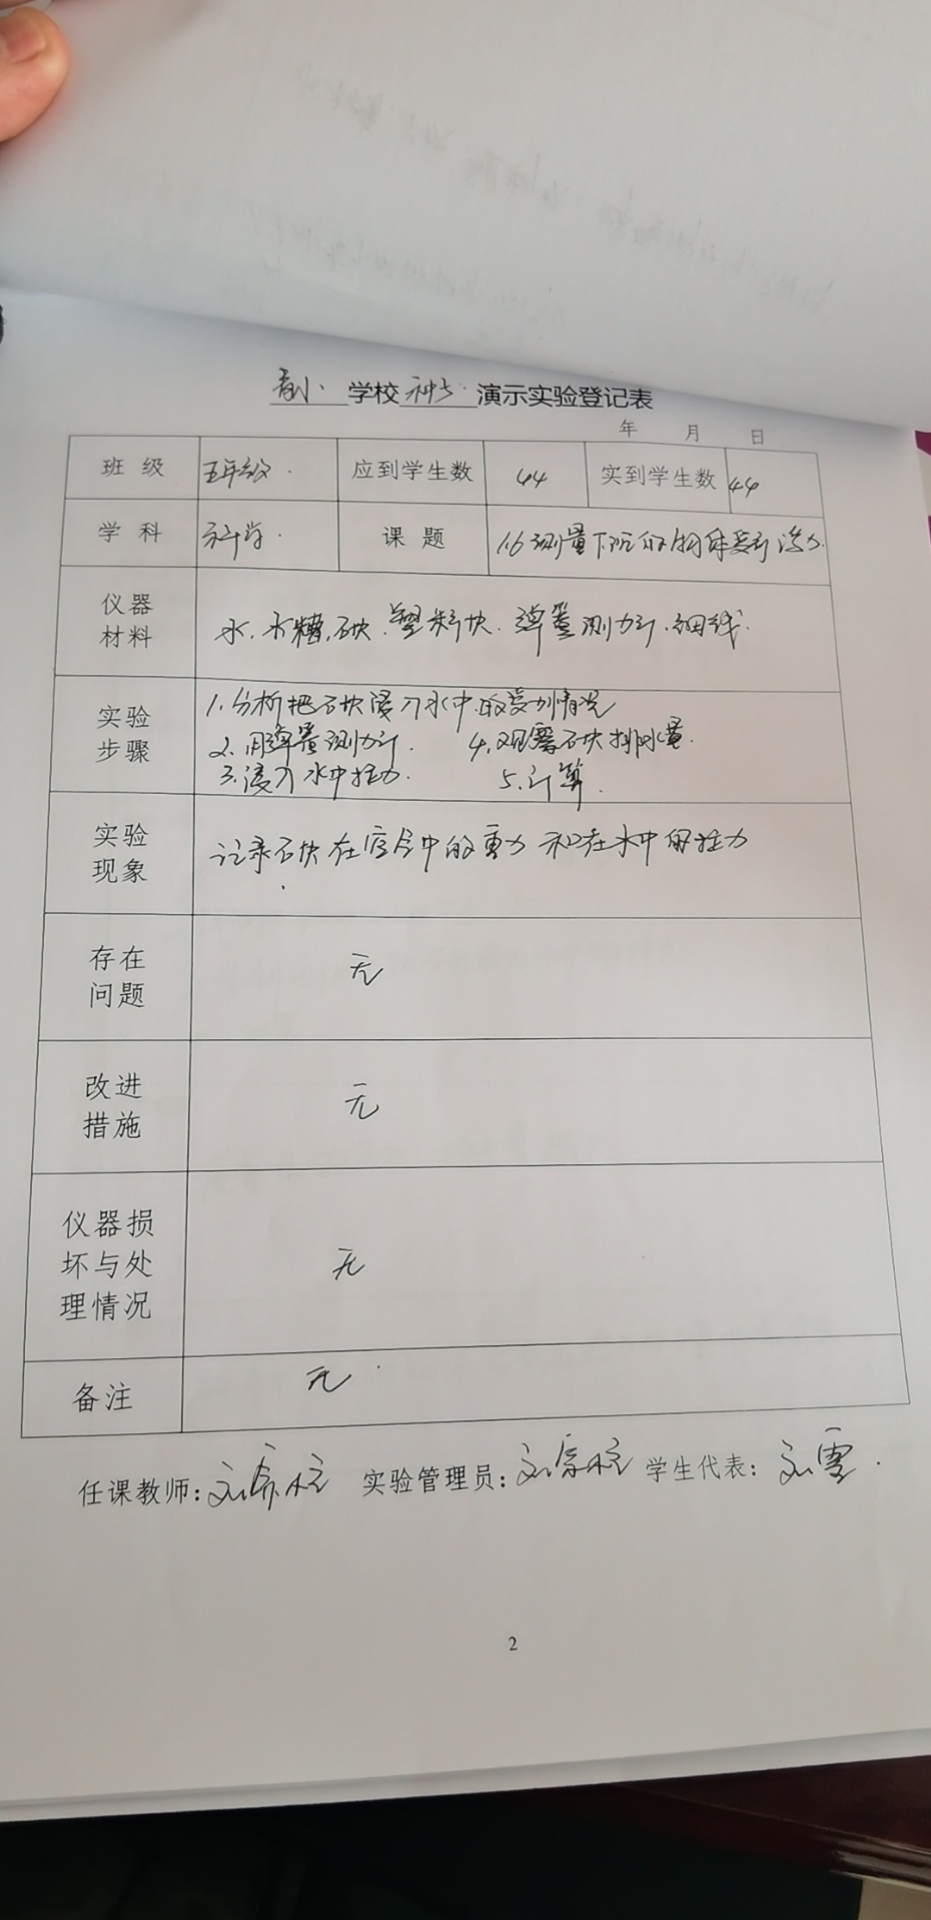 学校 演示实验登记表
年 月 日
班级 五年级 应到学生数 44 实到学生数 44
学科 科学 课题 1.6测量下沉的物体受到浮力
仪器材料 水.水槽.石块.塑料块.弹簧测力计.细线.
实验步骤 1.分析把石块浸入水中的受力情况
2.用弹簧测力计. 4.观察石块排水量.
3.浸入水中拉力. 5.计算.
实验现象 记录石块在空气中的重力和在水中的拉力
存在问题 无
改进措施 无
仪器损坏与处理情况 无
备注 无
任课教师: 刘 实验管理员: 刘 学生代表: 刘雪.
2